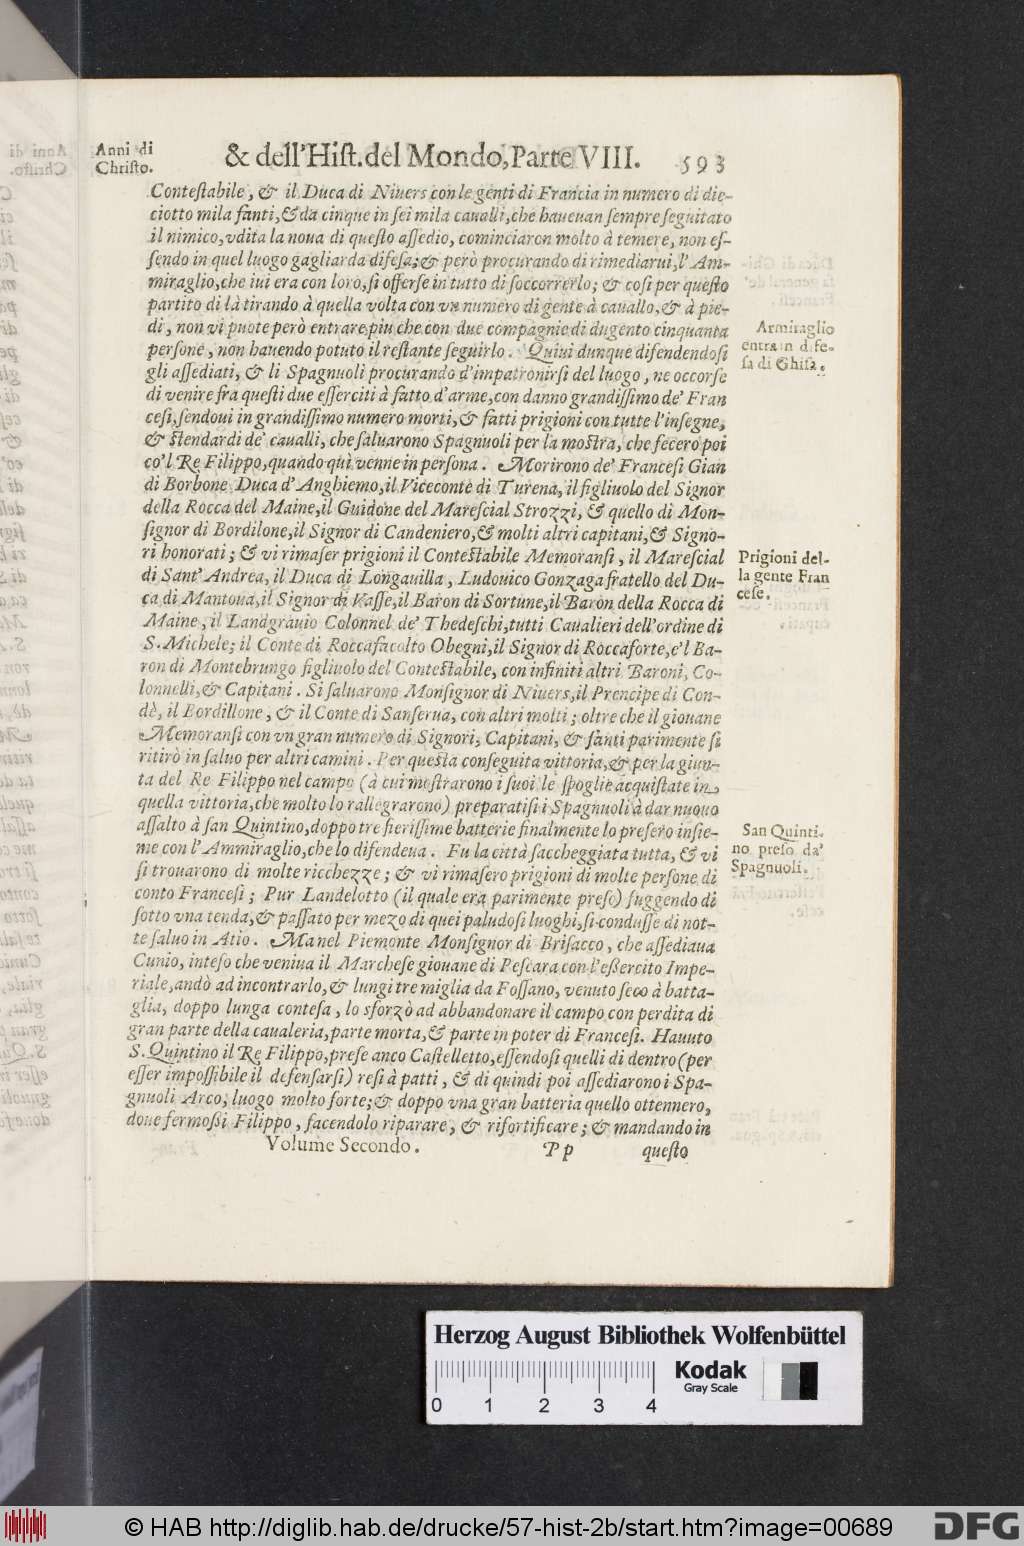 Anni di
Christo.
& dell'Hist. del Mondo, Parte VIII. 593
Contestabile, & il Duca di Nivers con le genti di Francia in numero di die-
ciotto mila fanti, & da cinque in sei mila caualli, che haueuan sempre seguitato
il nimico, vdita la noua di questo assedio, cominciaron molto à temere, non es-
sendo in quel luogo gagliarda difesa; & però procurando di rimediarui, l'Am-
miraglio, che iui era con loro, si offerse in tutto di soccorrerlo; & così per questo
partito di là tirando à quella volta con vn numero di gente à cauallo, & à pie-
di, non vi puote però entrare piu che con due compagnie di dugento cinquanta
persone, non hauendo potuto il restante seguirlo. Quiui dunque difendendosi
gli assediati, & li Spagnuoli procurando d'impatronirsi del luogo, ne occorse
di venire fra questi due esserciti à fatto d'arme, con danno grandissimo de' Fran
cesi, sendoui in grandissimo numero morti, & fatti prigioni con tutte l'insegne,
& stendardi de' caualli, che saluarono Spagnuoli per la mostra, che fecero poi
co'l Re Filippo, quando quì venne in persona. Morirono de' Francesi Gian
di Borbone Duca d'Anghiemo, il Viceconte di Turena, il figliuolo del Signor
della Rocca del Maine, il Guidone del Marescial Strozzi, & quello di Mon-
signor di Bordilone, il Signor di Candeniero, & molti altri capitani, & Signo-
ri honorati; & vi rimaser prigioni il Contestabile Memoransi, il Marescial
di Sant' Andrea, il Duca di Longauilla, Ludouico Gonzaga fratello del Du-
ca di Mantoua, il Signor di Vasse, il Baron di Sortune, il Baron della Rocca di
Maine, il Landgrauio Colonnel de' Thedeschi, tutti Caualieri dell'ordine di
S. Michele; il Conte di Roccafacolto Obegni, il Signor di Roccaforte, e'l Ba-
ron di Montebrungo figliuolo del Contestabile, con infiniti altri Baroni, Co-
lonnelli, & Capitani. Si saluarono Monsignor di Niuers, il Prencipe di Con-
dè, il Bordillone, & il Conte di Sanserua, con altri molti; oltre che il giouane
Memoransi con vn gran numero di Signori, Capitani, & fanti parimente si
ritirò in saluo per altri camini. Per questa conseguita vittoria, & per la giun-
ta del Re Filippo nel campo (à cui mostrarono i suoi le spoglie acquistate in
quella vittoria, che molto lo rallegrarono) preparatisi i Spagnuoli à dar nuouo
assalto à san Quintino, doppo tre fierissime batterie finalmente lo presero insie-
me con l'Ammiraglio, che lo difendeua. Fu la città saccheggiata tutta, & vi
si trouarono di molte ricchezze; & vi rimasero prigioni di molte persone di
conto Francesi; Pur Landelotto (il quale era parimente preso) fuggendo di
sotto vna tenda, & passato per mezo di quei paludosi luoghi, si condusse di not-
te saluo in Atio. Ma nel Piemonte Monsignor di Brisacco, che assediaua
Cunio, inteso che veniua il Marchese giouane di Pescara con l'essercito Impe-
riale, andò ad incontrarlo, & lungi tre miglia da Fossano, venuto seco à batta-
glia, doppo lunga contesa, lo sforzò ad abbandonare il campo con perdita di
gran parte della caualeria, parte morta, & parte in poter di Francesi. Hauuto
S. Quintino il Re Filippo, prese anco Castelletto, essendosi quelli di dentro (per
esser impossibile il defensarsi) resi à patti, & di quindi poi assediarono i Spa-
gnuoli Arco, luogo molto forte; & doppo vna gran batteria quello ottennero,
doue fermossi Filippo, facendolo riparare, & risortificare; & mandando in
Volume Secondo. Pp questo
Armiraglio
entra in dife-
sa di Ghisa.
Prigioni del-
la gente Fran
cese.
San Quinti-
no preso da'
Spagnuoli.
Herzog August Bibliothek Wolfenbüttel
Kodak
Gray Scale
0 1 2 3 4
© HAB http://diglib.hab.de/drucke/57-hist-2b/start.htm?image=00689
DFG